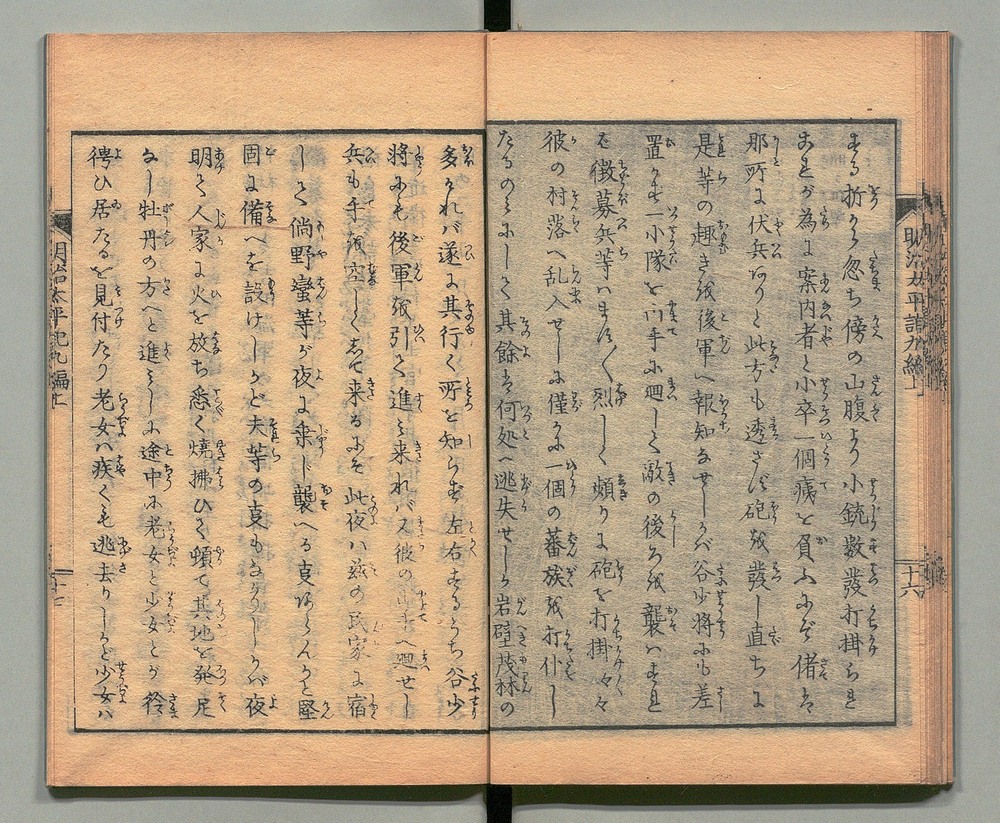 する折から忽ち傍の山腹より小銃数發打掛られ
これが為に案内者と小卒一個痍を負ふにぞ偖は
那所に伏兵ありと此方も透さず砲を發し直ちに
是等の趣きを後軍へ報知なせしかバ谷少将にも差
置かず一小隊を川手に廻して敵の後ろを襲ハすれ
ば徴募兵等ハます〱烈しく頻りに砲を打掛々々
彼の村落へ乱入せしに僅かに一個の蕃族を打什し
たるのミにして其餘は何処へ逃失せしか岩壁茂林の
多けれバ遂に其行く所を知らず左右するうち谷少
将にも後軍を引て進ミ来れバ又彼の山手へ廻せし
兵も手を空しくして来るにぞ此夜ハ茲の民家に宿
して倘野蠻等が夜に乗じ襲へる事あらんかと堅
固に備へを設けしかど夫等の事もなかりしかバ夜
明て人家に火を放ち悉く燒拂ひて頓て其地を発足
なし牡丹の方へと進ミしに途中に老女と少女とが徬
徨ひ居たるを見付たり老女ハ疾くも逃去りしかど少女ハ
明治太平記九編上
十六
明治太平記九編上
十七